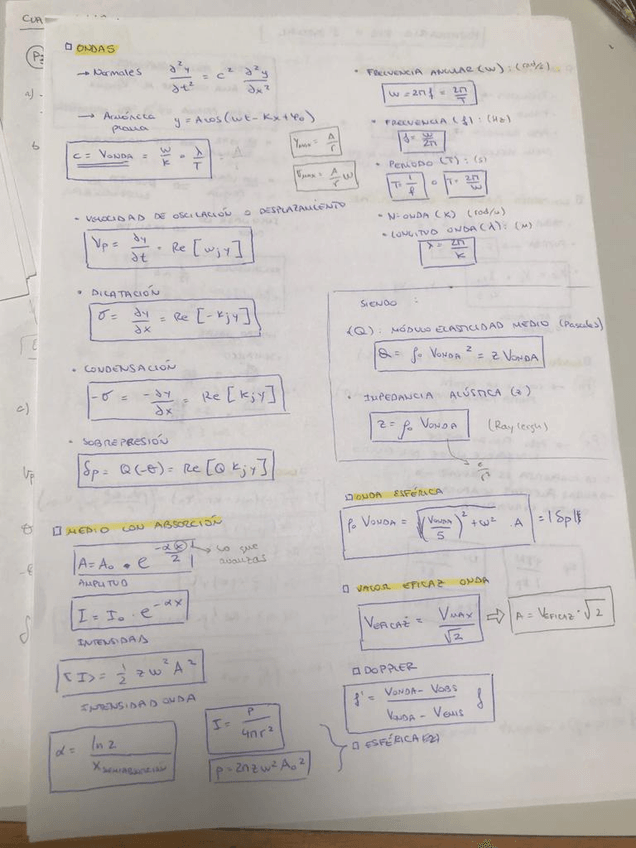 CUA
□ ONDAS
→ Normales ∂²y/∂t² = c² ∂²y/∂x²
→ Acústica plana y = A cos(wt - Kx + φ₀)
c = VONDA = w/K = λ/T
Ymax = A/r
Vmax = A/r w
• VELOCIDAD DE OSCILACIÓN O DESPLAZAMIENTO
Vp = ∂y/∂t = Re [wjy]
• DILATACIÓN
σ = ∂y/∂x = Re [-Kjy]
• CONDENSACIÓN
-σ = -∂y/∂x = Re [Kjy]
• SOBREPRESIÓN
δp = Q(-σ) = Re [Q Kjy]
□ MEDIO CON ABSORCIÓN
A = A₀ · e^(-αx/2) → lo que avanzas
AMPLITUD
I = I₀ · e^(-αx)
INTENSIDAD
⟨I⟩ = 1/2 z w² A²
INTENSIDAD ONDA
α = ln 2 / x SEMIABSORCIÓN
I = P/4πr²
P = 2πzw²A₀²
□ ESFÉRICA
• FRECUENCIA ANGULAR (W) : (rad/s)
W = 2πf = 2π/T
• FRECUENCIA (f) : (Hz)
f = w/2π
• PERÍODO (T) : (s)
T = 1/f o T = 2π/w
• Nº ONDA (K) (rad/m)
• LONGITUD ONDA (λ) : (m)
λ = 2π/K
SIENDO :
(Q) : MÓDULO ELASTICIDAD MEDIO (Pascales)
Q = ρ₀ VONDA² = z VONDA
• IMPEDANCIA ACÚSTICA (z)
z = ρ₀ VONDA (Rayleigh)
□ ONDA ESFÉRICA
ρ₀ VONDA = √((VONDA/5)² + w²) · A = |δp|
□ VALOR EFICAZ ONDA
VEFICAZ = VMAX/√2 ⇒ A = VEFICAZ · √2
□ DOPPLER
f' = (VONDA - VOBS)/(VONDA - VEMIS) f